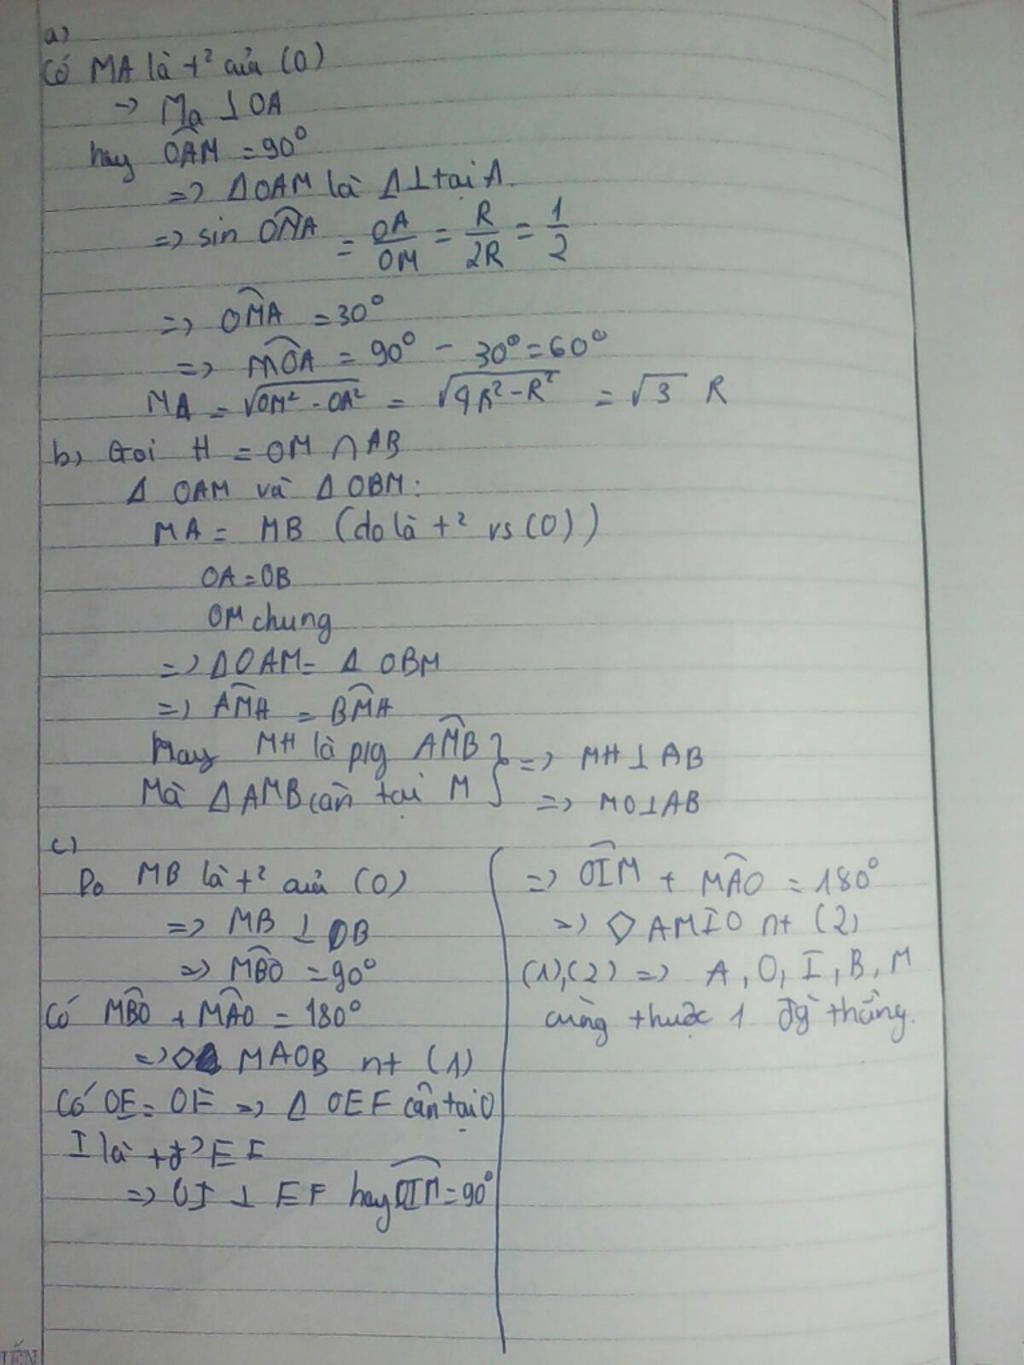 a)
Có MA là t² của (O)
-> Ma ⊥ OA
hay OAM = 90°
=> Δ OAM là Δ⊥ tại A.
=> sin OMA = OA/OM = R/2R = 1/2
=> OMA = 30°
=> MOA = 90° - 30° = 60°
MA = √OM² - OA² = √4R² - R² = √3 R
b) Gọi H = OM ∩ AB
Δ OAM và Δ OBM:
MA = MB (do là t² vs (O))
OA = OB
OM chung
=> Δ OAM = Δ OBM
=> AMH = BMH
Hay MH là p/g AMB } => MH ⊥ AB
Mà Δ AMB cân tại M } => MO ⊥ AB
c)
Do MB là t² của (O)
=> MB ⊥ OB
=> MBO = 90°
Có MBO + MAO = 180°
=> ◇ MAOB nt (1)
Có OE = OF => Δ OEF cân tại O
I là tđ² EF
=> OI ⊥ EF hay OIM = 90°
=> OIM + MAO = 180°
=> ◇ AMIO nt (2)
(1),(2) => A, O, I, B, M
cùng thuộc 1 đg thẳng.